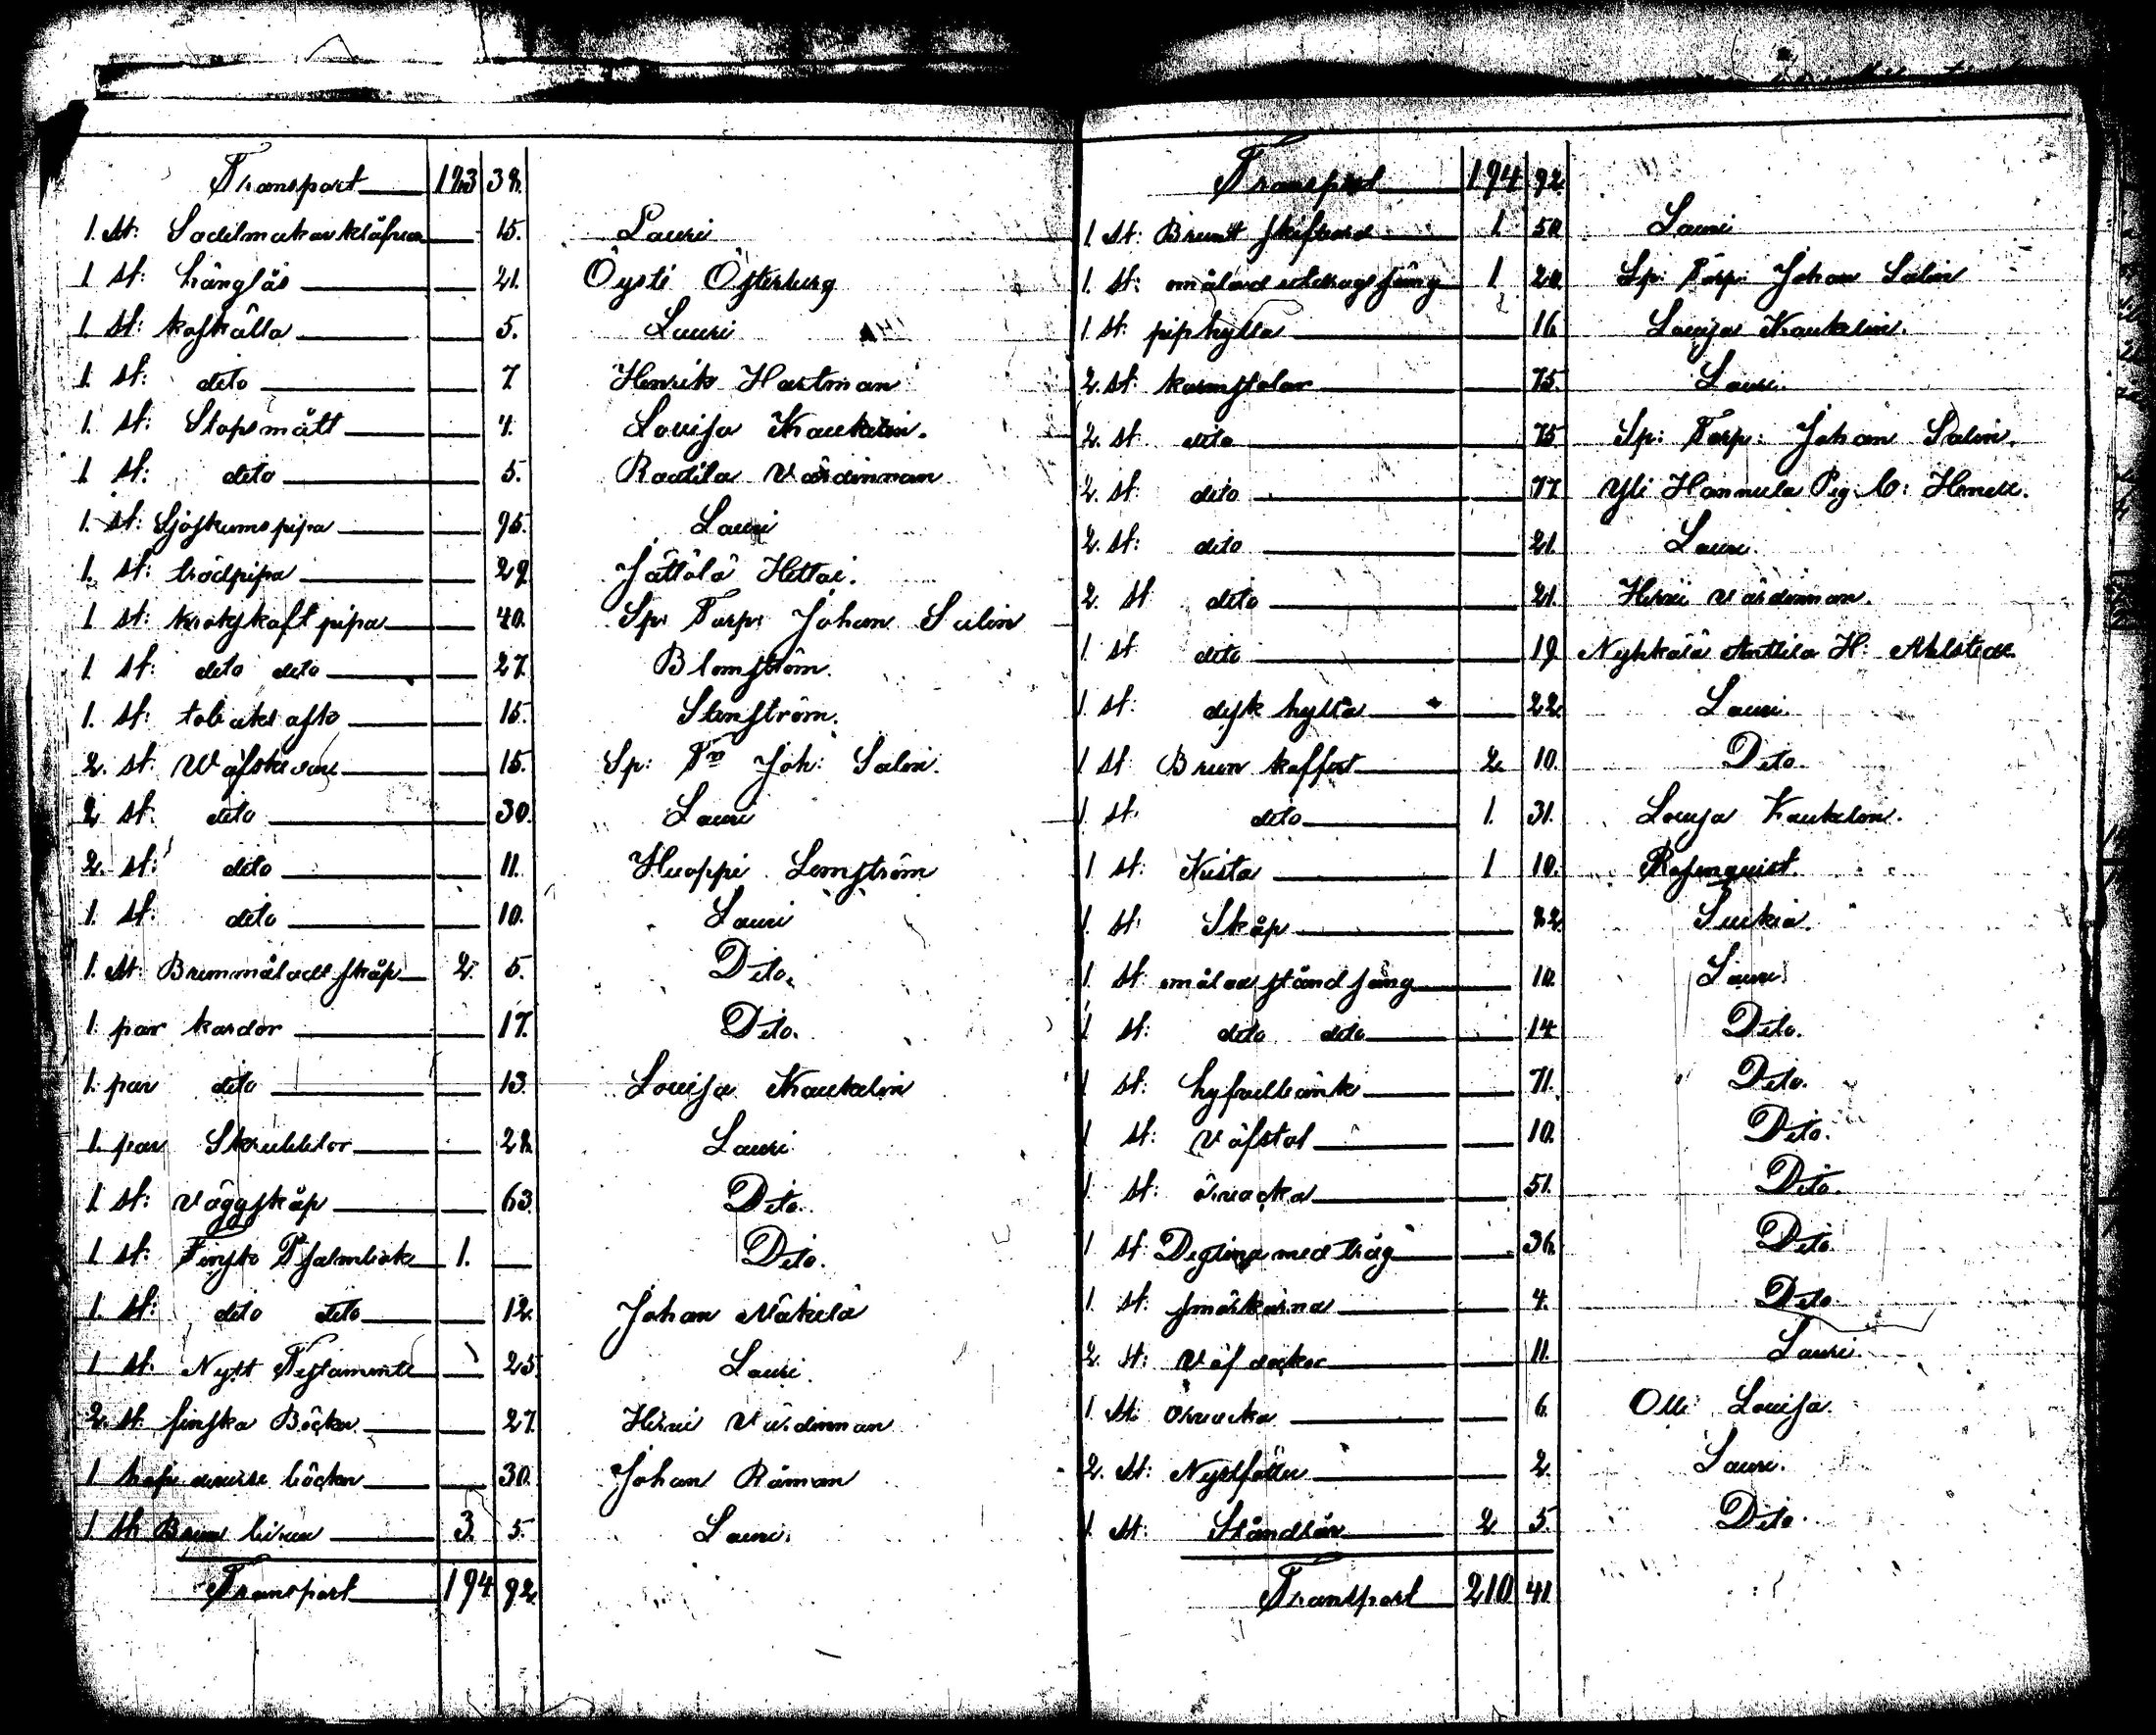 Transport 38.
1. St: Sadelmakar
15. Lauri
1 St: hänglås 21. Öysti Österberg
1. St: kafkälla 5. Lauri
1. St: dito 7 Henrik Hartman
1. St: Stopsmått 4. Lovisa Kaukelin.
1 St: dito 5. Radila Värdinnan
1. St: Sjöskumspipa 95. Lauri
1. St: trädpipa 29. Jättälä Hettai.
1 St: krokskaft pipa 40. Sp: Torp: Johan Salin
1 St: dito dito 27. Blomström.
1. St: tobaksask 15. Stenström.
2. St: Wäfskedar 15. Sp: Tp Joh: Salin.
2 St: dito 30. Lauri
2. St: dito 11. Huoppi Lemström
1 St: dito 10. Lauri
1. St: Brunmåladt skåp 2. 5. Dito.
1 par kardor 17. Dito.
1. par dito 13. Lovisa Kaukelin
1. par Skrubblor 28. Lauri
1 St: väggskåp 63. Dito.
1 St: Finsk Psalmbok 1. Dito.
1. St: dito dito 12. Johan Mäkelä
1 St: Nytt Testamente 25. Lauri.
2. St: finska Böcker 27. Hirvi Värdinnan
1 böcker 30. Johan Råman
1 St: Brun 3. 5. Lauri.
Transport 194 92.
Transport 194 92.
1 St: Brunt skifbord 1. 50. Lauri
1. St: omålad utdragssäng 1 20. Sp: Torp: Johan Salin
1 St: piphylla 16. Lovisa Kaukelin.
2. St: karmstolar 75. Lauri.
2. St: dito 75. Sp: Torp: Johan Salin.
2 St: dito 77. Yli Hannula Pig.
2. St: dito 21. Lauri.
2. St: dito 21. Hirvi Värdinnan.
1 St: dito 19. Nyhkälä Anttila H: Ahlstedt.
1 St: disk hylla 22. Lauri.
1 St: Brun koffert 2. 10. Dito.
1 St: dito 1. 31. Lovisa Kaukelin.
1 St: Kista 1 10. Rosenquist.
1 St: Skåp 22. Suikia.
1 St: omålad ståndsäng 10. Lauri
1 St: dito dito 14. Dito.
1 St: hyfvelbänk 71. Dito.
1 St: väfstol 10. Dito.
1 St: 51. Dito.
1 St: Degtina med tråg 36. Dito.
1. St: smörkärna 4. Dito.
2. St: 11. Lauri.
1. St: 6. Olli Lovisa.
2. St: Nystfötter 2. Lauri.
1. St: 2 5. Dito.
Transport 210 41.